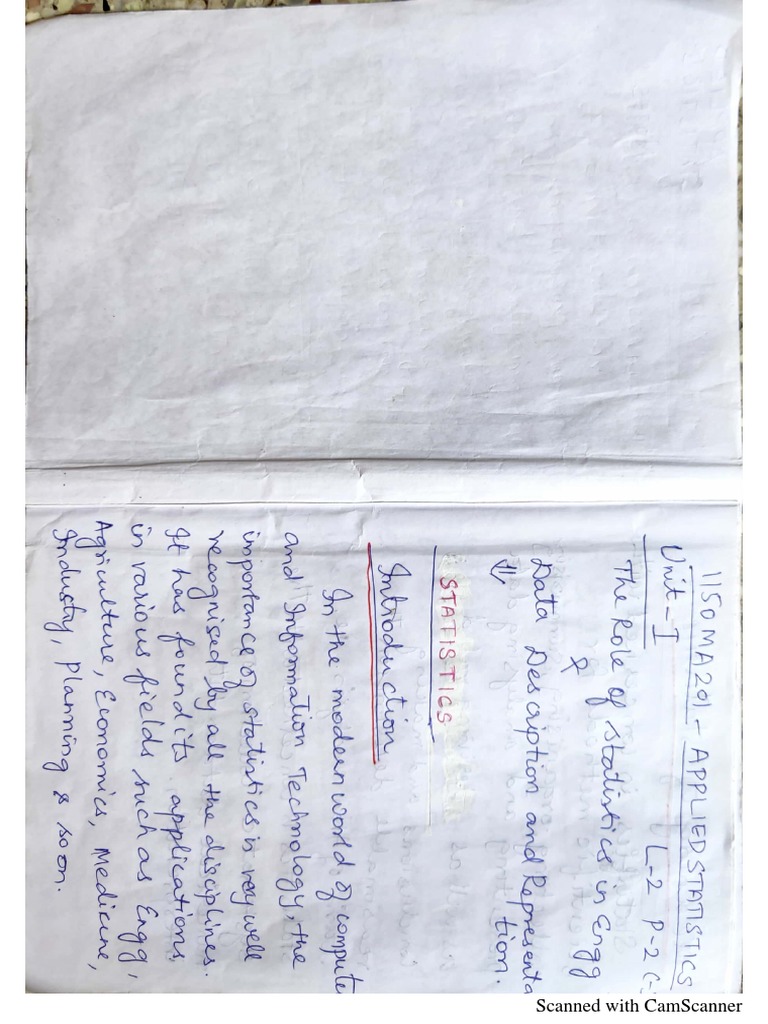 1150MA201 - APPLIED STATISTICS
Unit - I L-2 P-2
The Role of statistics in Engg
&
Data Description and Representa
tion.
STATISTICS
Introduction
In the modern world of compute
and Information Technology, the
importance of statistics is very well
recognised by all the disciplines.
It has found its applications
in various fields such as Engg,
Agriculture, Economics, Medicine,
Industry, Planning & soon.
Scanned with CamScanner